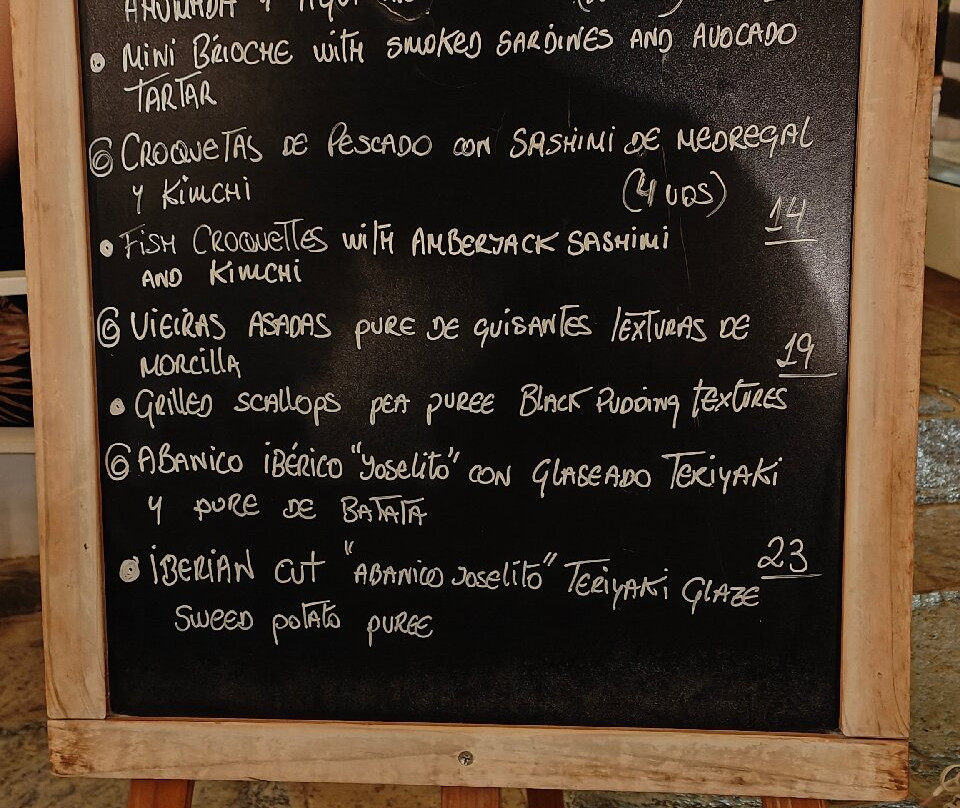 AHUMADA Y
• MINI BRIOCHE WITH SMOKED SARDINES AND AVOCADO
TARTAR
CROQUETAS DE PESCADO CON SASHIMI DE MEDREGAL
Y KIMCHI (4 UDS)
14
• FISH CROQUETTES WITH AMBERJACK SASHIMI
AND KIMCHI
VIEIRAS ASADAS PURE DE GUISANTES TEXTURAS DE
MORCILLA
19
• GRILLED SCALLOPS PEA PUREE BLACK PUDDING TEXTURES
ABANICO IBÉRICO "JOSELITO" CON GLASEADO TERIYAKI
Y PURE DE BATATA
23
• IBERIAN CUT "ABANICO JOSELITO" TERIYAKI GLAZE
SWEED POTATO PUREE